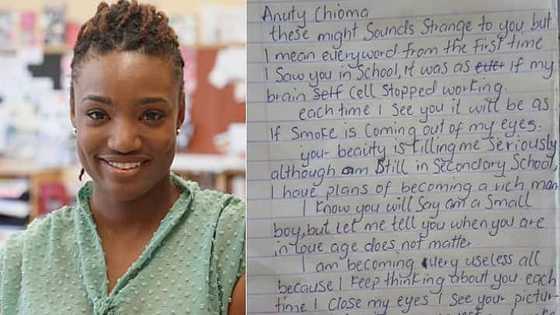 Anuty Chioma
these might Sounds Strange to you but
I mean everyword from the first time
I Saw you in School, it was as if my
brain self Cell Stopped working.
each time I See you it will be as
if Smoke is Coming out of my eyes.
your beauty is killing me Seriously
although am Still in Secondary School
I have plans of becoming a rich ma
I know you will Say am a Small
boy, but let me tell you when you are
in love age does not matter
I am becoming very useless all
because I keep thinking about you each
time I close my eyes I see your pictur